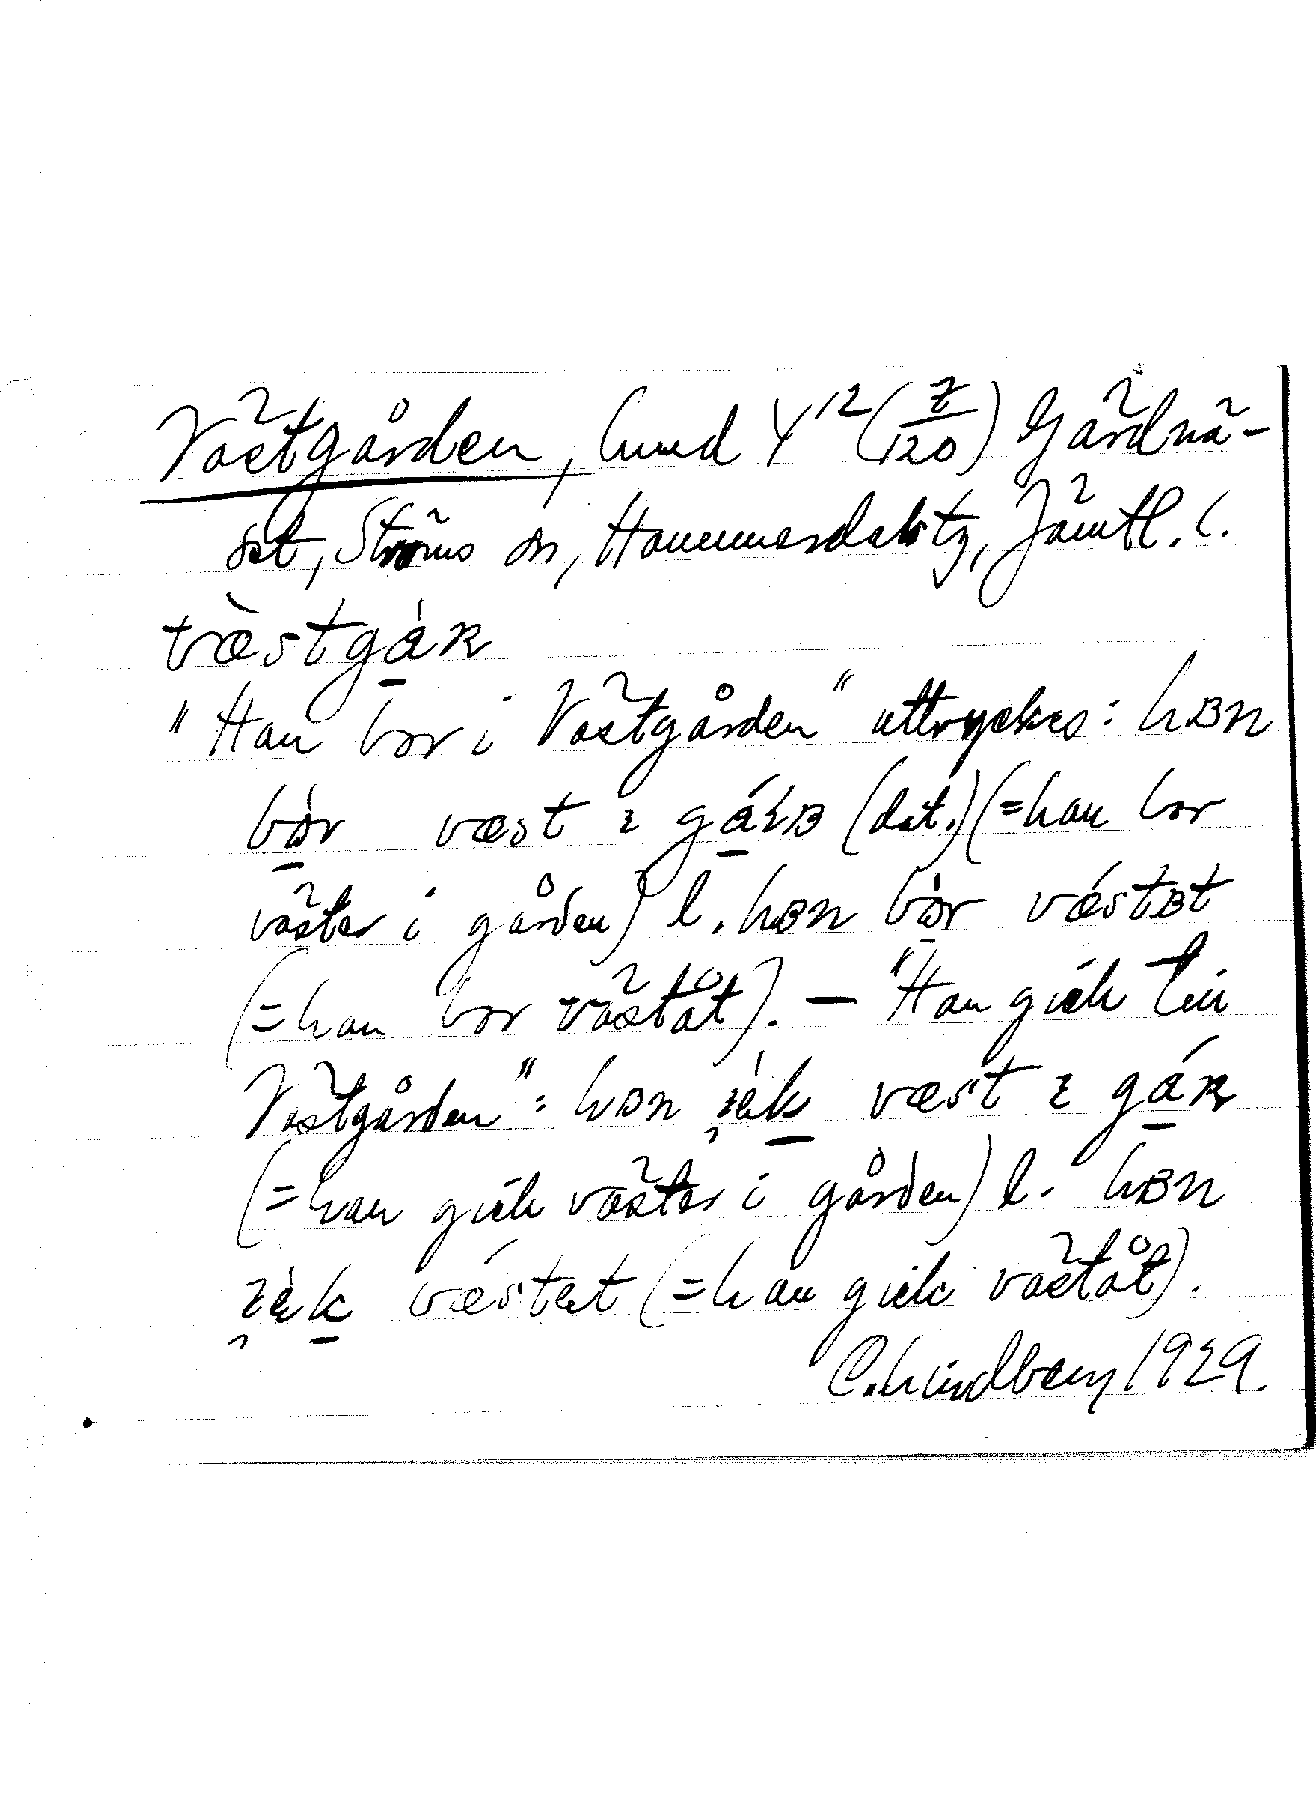 Västgården, hmd 4¹² (7/120) Gärdnä-
set, Ströms sn, Hammerdals tg, Jämtl. l.
væ̀stga̱ʀ
"Han bor i Västgården" uttryckes: hʙn
bo̱r væst ɩ gá̱ɩʙ (dat.) (=han bor
väster i gården) l. hʙn bo̱r vǽstʙt
(=han bor väståt). — "Han gick till
Västgården": hʙn væst ɩ gá̱ʀ
(=han gick väster i gården) l. hʙn
(=han gick väståt).
C. Lindberg 1929.